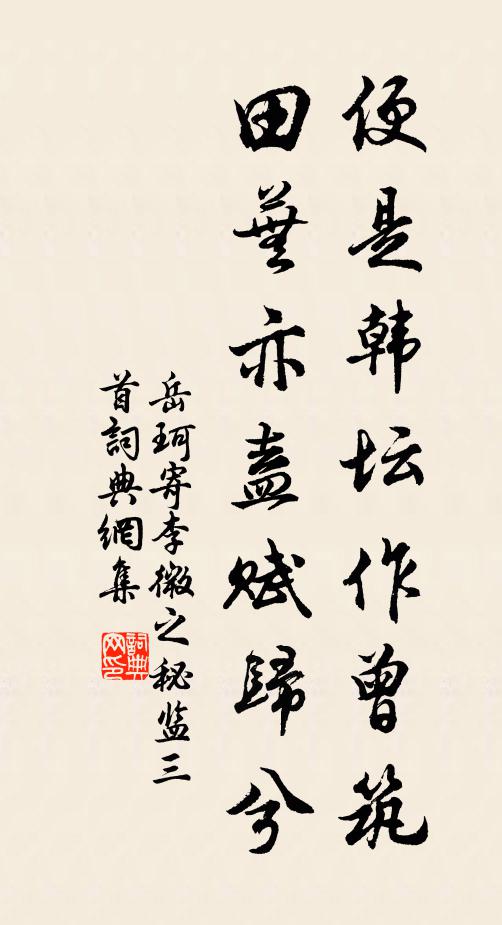 便是韩坛作曾筑
田芜亦盍赋歸兮
岳珂寄李微之秘监三
首詞典網集
詞典
网印